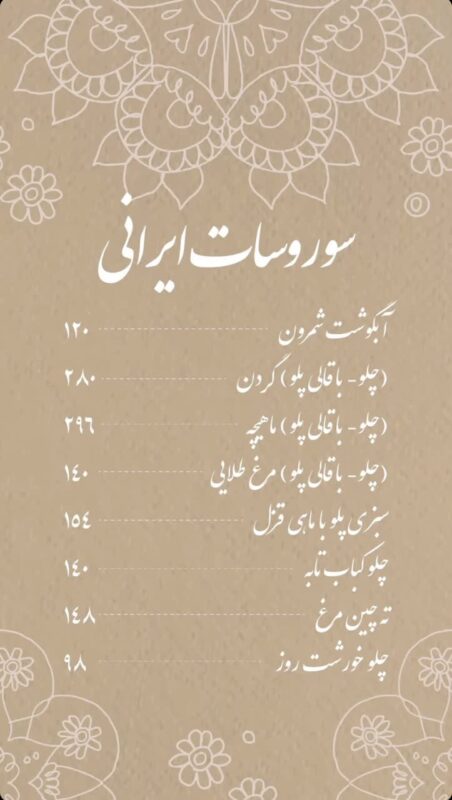 سوروسات ایرانی
آبگوشت شمرون ۱۲۰
(چلو - باقالی پلو) گردن ۲۸۰
(چلو - باقالی پلو) ماهیچه ۲۹۶
(چلو - باقالی پلو) مرغ طلایی ۱۴۰
سبزی پلو با ماهی قزل ۱۵۴
چلو کباب تابه ۱۴۰
ته چین مرغ ۱۴۸
چلو خورشت روز ۹۸